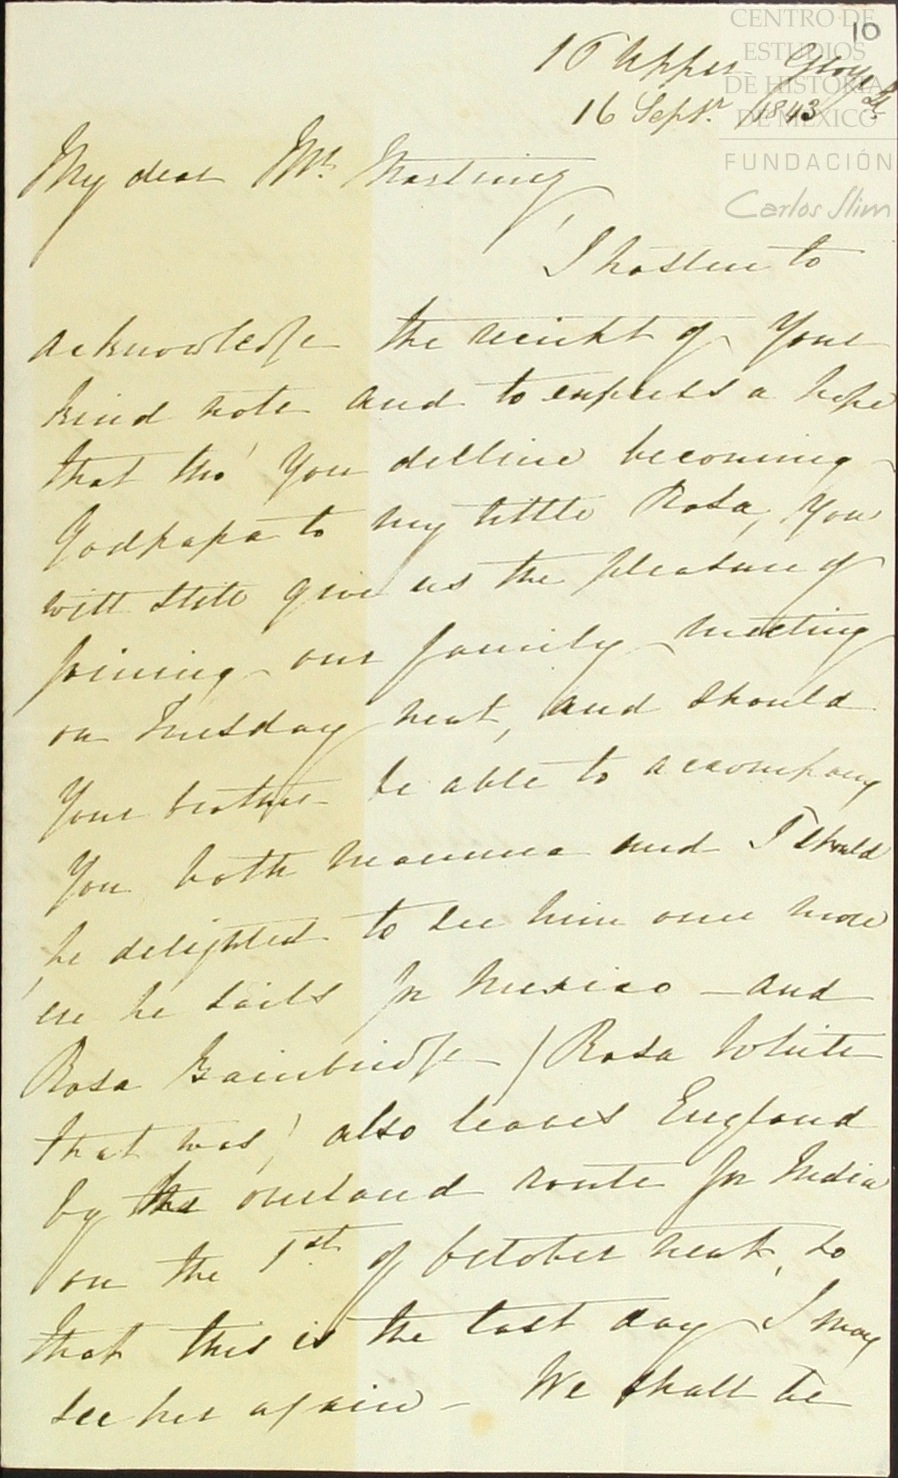 10
CENTRO DE
ESTUDIOS
DE HISTORIA
DE MÉXICO
FUNDACIÓN
Carlos Slim
16 Upper St.
16 Septr. 1843
My dear Mr.
I hasten to
acknowledge the receipt of your
kind note and to express a hope
that tho' you decline becoming
Godpapa to my little Rosa, you
will still give us the pleasure of
joining our family meeting
on Tuesday next, and should
your brother be able to accompany
you both mamma and I should
be delighted to see him once more
ere he sails for Mexico — and
Rosa Bainbridge (Rosa White
that was) also leaves England
by the overland route for India
on the 1st. of October next, so
that this is the last day I may
see her again — We shall be